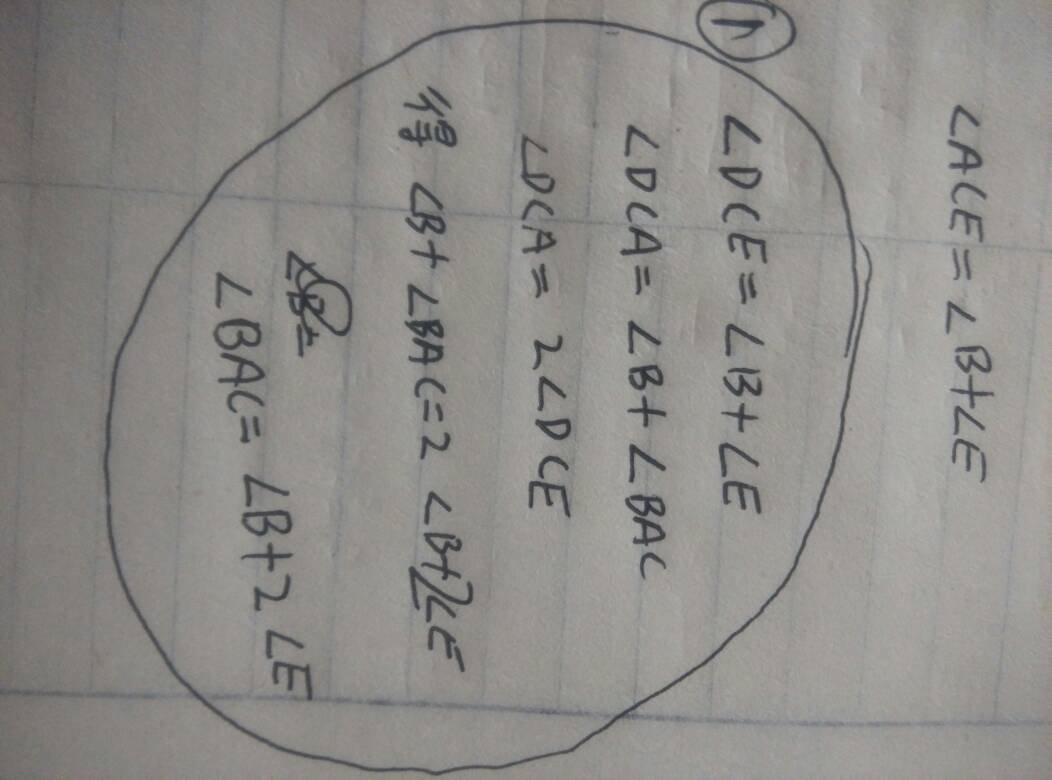 ∠ACE=∠B+∠E
(1)
∠DCE=∠B+∠E
∠DCA=∠B+∠BAC
∠DCA=2∠DCE
得 ∠B+∠BAC=2∠B+2∠E
∠BAC=∠B+2∠E